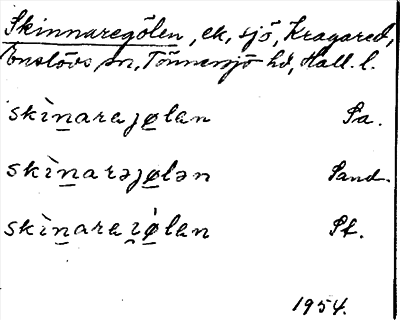 Skinnaregölen, ek, sjö, Kragared,
Enslövs sn, Tönnersjö hd, Hall. l.
skìn̲arajø̲lan Sa.
skìn̲arəjø̲lən Sand.
skìn̲araɪ̯ǿ̲lan St.
1954.